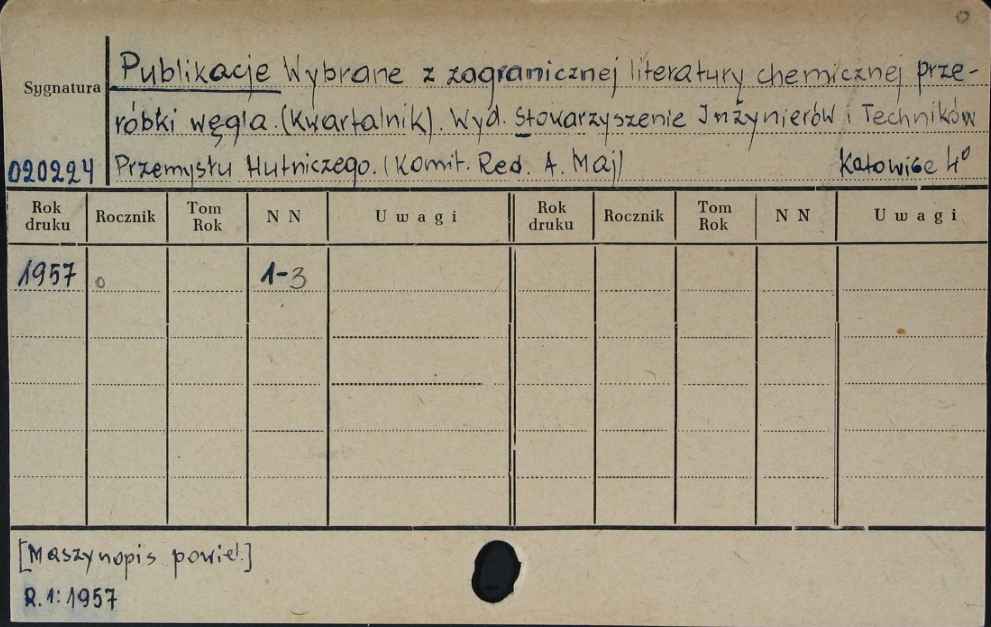 Sygnatura
Publikacje Wybrane z zagranicznej literatury chemicznej prze-
róbki węgla. (Kwartalnik). Wyd. Stowarzyszenie Inżynierów i Techników
020224 Przemysłu Hutniczego. (Komit. Red. A. Maj) Katowice 4°
Rok druku Rocznik Tom Rok N N Uwagi Rok druku Rocznik Tom Rok N N Uwagi
1957 o 1-3
[Maszynopis powiel.]
R. 1: 1957